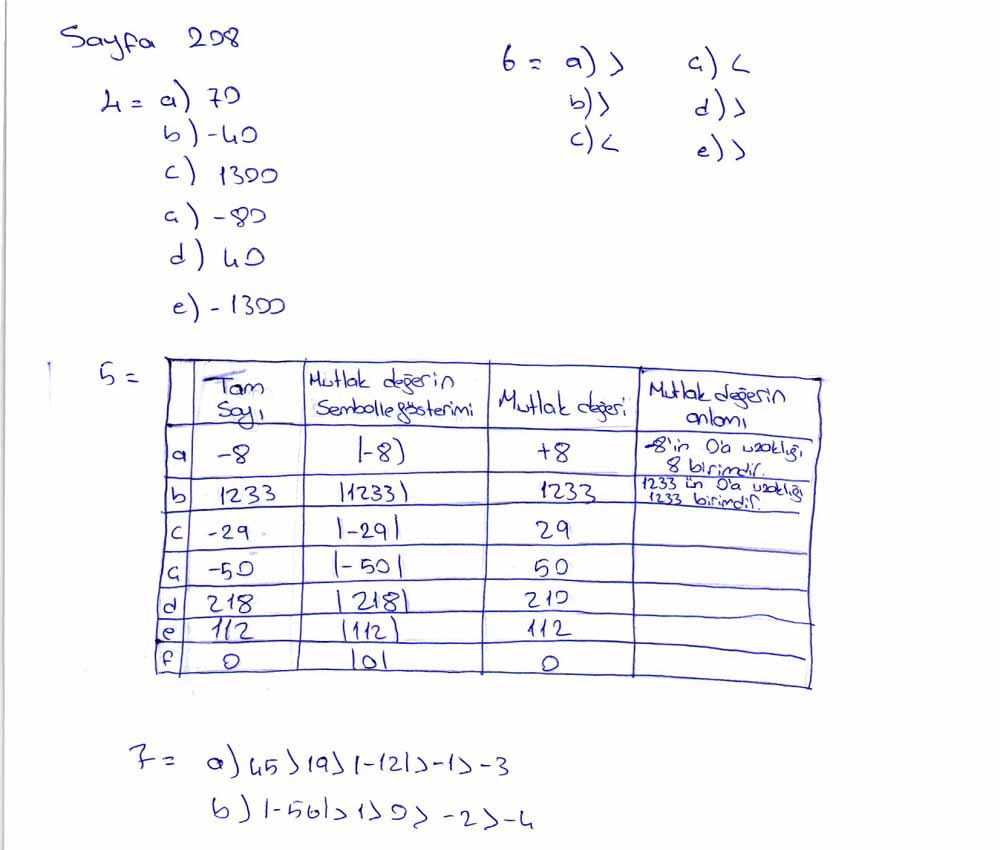 Sayfa 208
4 = a) 70
b) -40
c) 1300
ç) -80
d) 40
e) -1300
6 = a) > ç) <
b) > d) >
c) < e) >
5 =
Tam Sayı Mutlak değerin Sembolle gösterimi Mutlak değeri Mutlak değerin anlamı
a -8 |-8) +8 -8'in 0'a uzaklığı 8 birimdir.
b 1233 |1233) 1233 1233'ün 0'a uzaklığı 1233 birimdir.
c -29 |-29| 29
ç -50 |-50| 50
d 218 |218| 210
e 112 |112) 112
f 0 |0| 0
7 = a) 45 > 19 > |-12| > -1 > -3
b) |-56| > 1 > 0 > -2 > -4